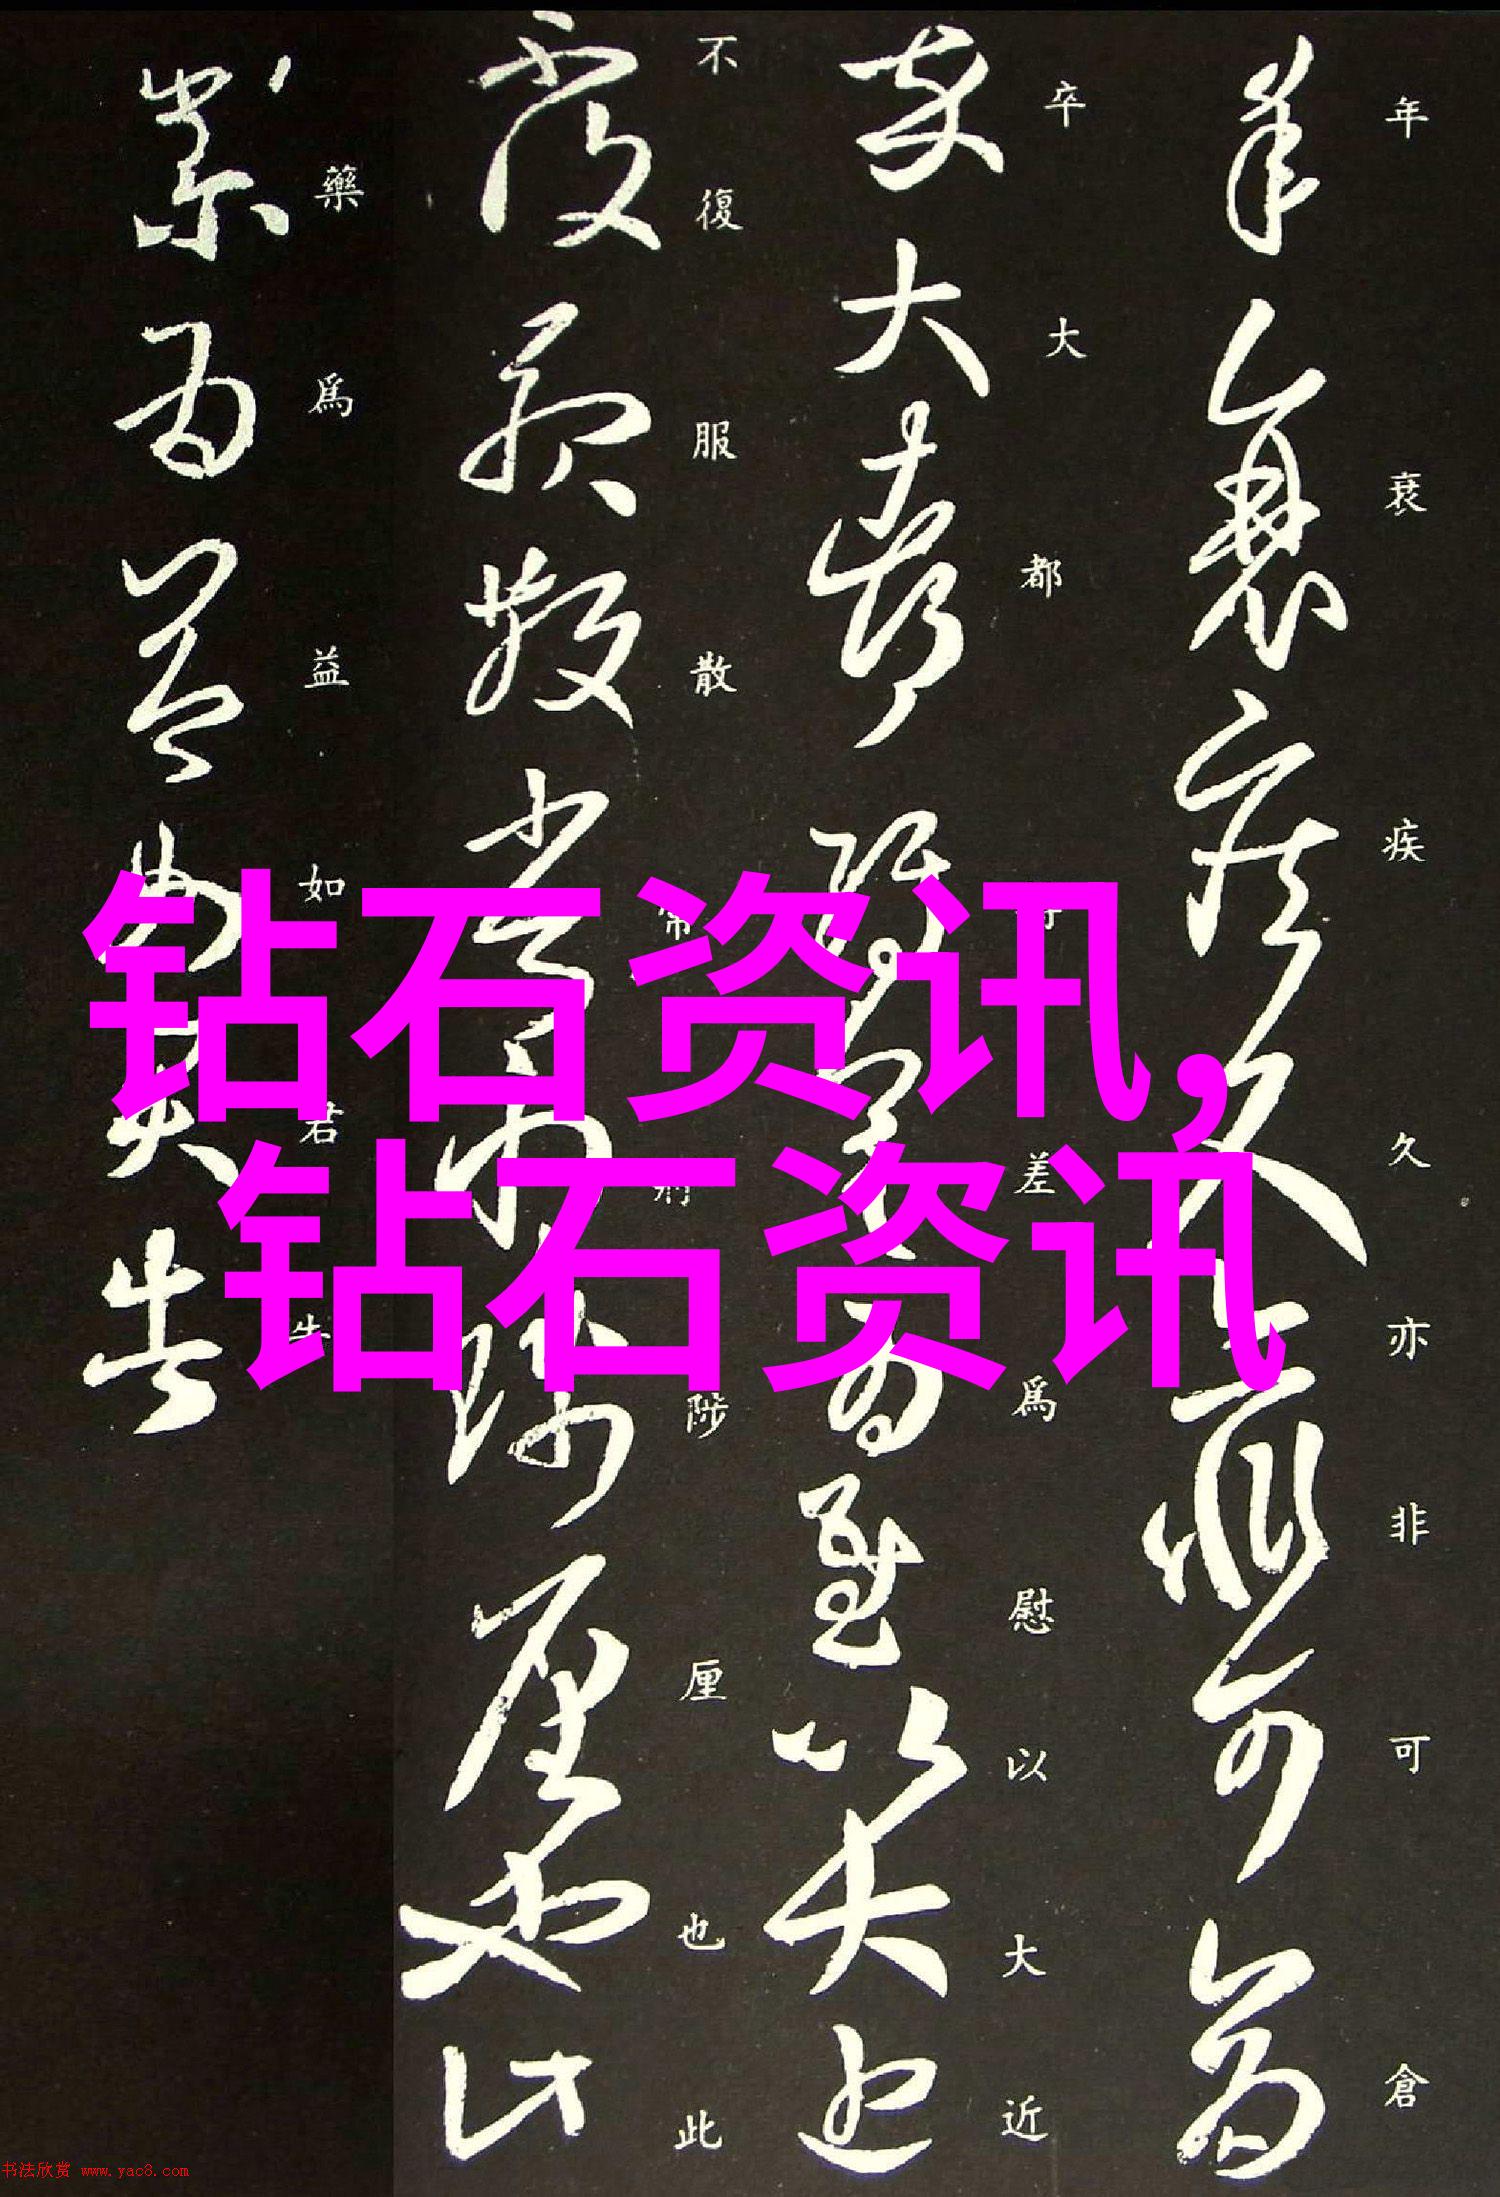 年衰疾久亦非可倉
卒大都差為慰以大近
不復服散常陟厘也此
藥為益如君告
钻石资讯,
钻石资讯
书法欣赏 www.yac8.com